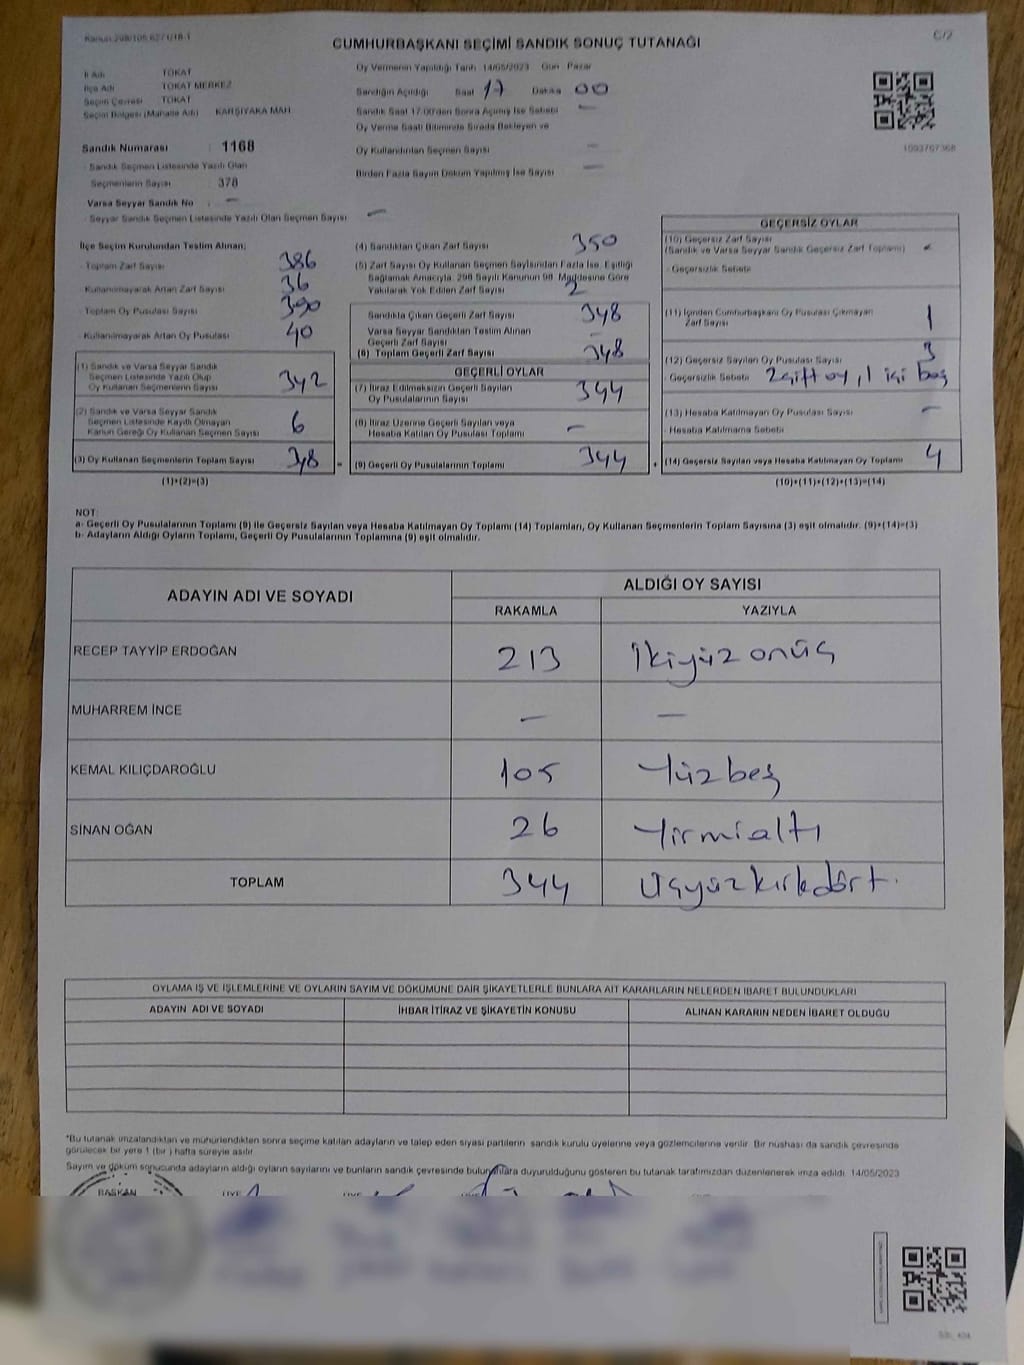 Kanun:298/105,6271/18-1
C/2
CUMHURBAŞKANI SEÇİMİ SANDIK SONUÇ TUTANAĞI
İl Adı TOKAT
İlçe Adı TOKAT MERKEZ
Seçim Çevresi TOKAT
Seçim Bölgesi (Mahalle Adı) KARŞIYAKA MAH.
Oy Vermenin Yapıldığı Tarih 14/05/2023 Gün Pazar
Sandığın Açıldığı Saat 17 Dakika 00
Sandık Saat 17:00'den Sonra Açılmış İse Sebebi —
Oy Verme Saati Bitiminde Sırada Bekleyen ve
Oy Kullandırılan Seçmen Sayısı —
Birden Fazla Sayım Döküm Yapılmış İse Sayısı —
1093707368
Sandık Numarası : 1168
- Sandık Seçmen Listesinde Yazılı Olan
Seçmenlerin Sayısı : 378
Varsa Seyyar Sandık No : —
- Seyyar Sandık Seçmen Listesinde Yazılı Olan Seçmen Sayısı : —
İlçe Seçim Kurulundan Teslim Alınan;
- Toplam Zarf Sayısı 386
- Kullanılmayarak Artan Zarf Sayısı 36
- Toplam Oy Pusulası Sayısı 390
- Kullanılmayarak Artan Oy Pusulası 40
(1) Sandık ve Varsa Seyyar Sandık
Seçmen Listesinde Yazılı Olup
Oy Kullanan Seçmenlerin Sayısı 342
(2) Sandık ve Varsa Seyyar Sandık
Seçmen Listesinde Kayıtlı Olmayan
Kanun Gereği Oy Kullanan Seçmen Sayısı 6
(3) Oy Kullanan Seçmenlerin Toplam Sayısı 348
(1)+(2)=(3)
(4) Sandıktan Çıkan Zarf Sayısı 350
(5) Zarf Sayısı Oy Kullanan Seçmen Sayısından Fazla İse, Eşitliği
Sağlamak Amacıyla, 298 Sayılı Kanunun 98. Maddesine Göre
Yakılarak Yok Edilen Zarf Sayısı 2
Sandıkta Çıkan Geçerli Zarf Sayısı 348
Varsa Seyyar Sandıktan Teslim Alınan
Geçerli Zarf Sayısı —
(6) Toplam Geçerli Zarf Sayısı 348
GEÇERLİ OYLAR
(7) İtiraz Edilmeksizin Geçerli Sayılan
Oy Pusulalarının Sayısı 344
(8) İtiraz Üzerine Geçerli Sayılan veya
Hesaba Katılan Oy Pusulası Toplamı —
= (9) Geçerli Oy Pusulalarının Toplamı 344
GEÇERSİZ OYLAR
(10) Geçersiz Zarf Sayısı
(Sandık ve Varsa Seyyar Sandık Geçersiz Zarf Toplamı) -
- Geçersizlik Sebebi
(11) İçinden Cumhurbaşkanı Oy Pusulası Çıkmayan
Zarf Sayısı 1
(12) Geçersiz Sayılan Oy Pusulası Sayısı 3
- Geçersizlik Sebebi 2 çift oy, 1 içi boş
(13) Hesaba Katılmayan Oy Pusulası Sayısı —
- Hesaba Katılmama Sebebi
+ (14) Geçersiz Sayılan veya Hesaba Katılmayan Oy Toplamı 4
(10)+(11)+(12)+(13)=(14)
NOT:
a- Geçerli Oy Pusulalarının Toplamı (9) ile Geçersiz Sayılan veya Hesaba Katılmayan Oy Toplamı (14) Toplamları, Oy Kullanan Seçmenlerin Toplam Sayısına (3) eşit olmalıdır. (9)+(14)=(3)
b- Adayların Aldığı Oyların Toplamı, Geçerli Oy Pusulalarının Toplamına (9) eşit olmalıdır.
ADAYIN ADI VE SOYADI ALDIĞI OY SAYISI
RAKAMLA YAZIYLA
RECEP TAYYİP ERDOĞAN 213 İkiyüz onüç
MUHARREM İNCE — —
KEMAL KILIÇDAROĞLU 105 Yüzbeş
SİNAN OĞAN 26 Yirmialtı
TOPLAM 344 Üçyüzkırkdört.
OYLAMA İŞ VE İŞLEMLERİNE VE OYLARIN SAYIM VE DÖKÜMÜNE DAİR ŞİKAYETLERLE BUNLARA AİT KARARLARIN NELERDEN İBARET BULUNDUKLARI
ADAYIN ADI VE SOYADI İHBAR İTİRAZ VE ŞİKAYETİN KONUSU ALINAN KARARIN NEDEN İBARET OLDUĞU
*Bu tutanak imzalandıktan ve mühürlendikten sonra seçime katılan adayların ve talep eden siyasi partilerin sandık kurulu üyelerine veya gözlemcilerine verilir. Bir nüshası da sandık çevresinde
görülecek bir yere 1 (bir) hafta süreyle asılır.
Sayım ve döküm sonucunda adayların aldığı oyların sayılarını ve bunların sandık çevresinde bulunanlara duyurulduğunu gösteren bu tutanak tarafımızdan düzenlenerek imza edildi. 14/05/2023
BAŞKAN ÜYE